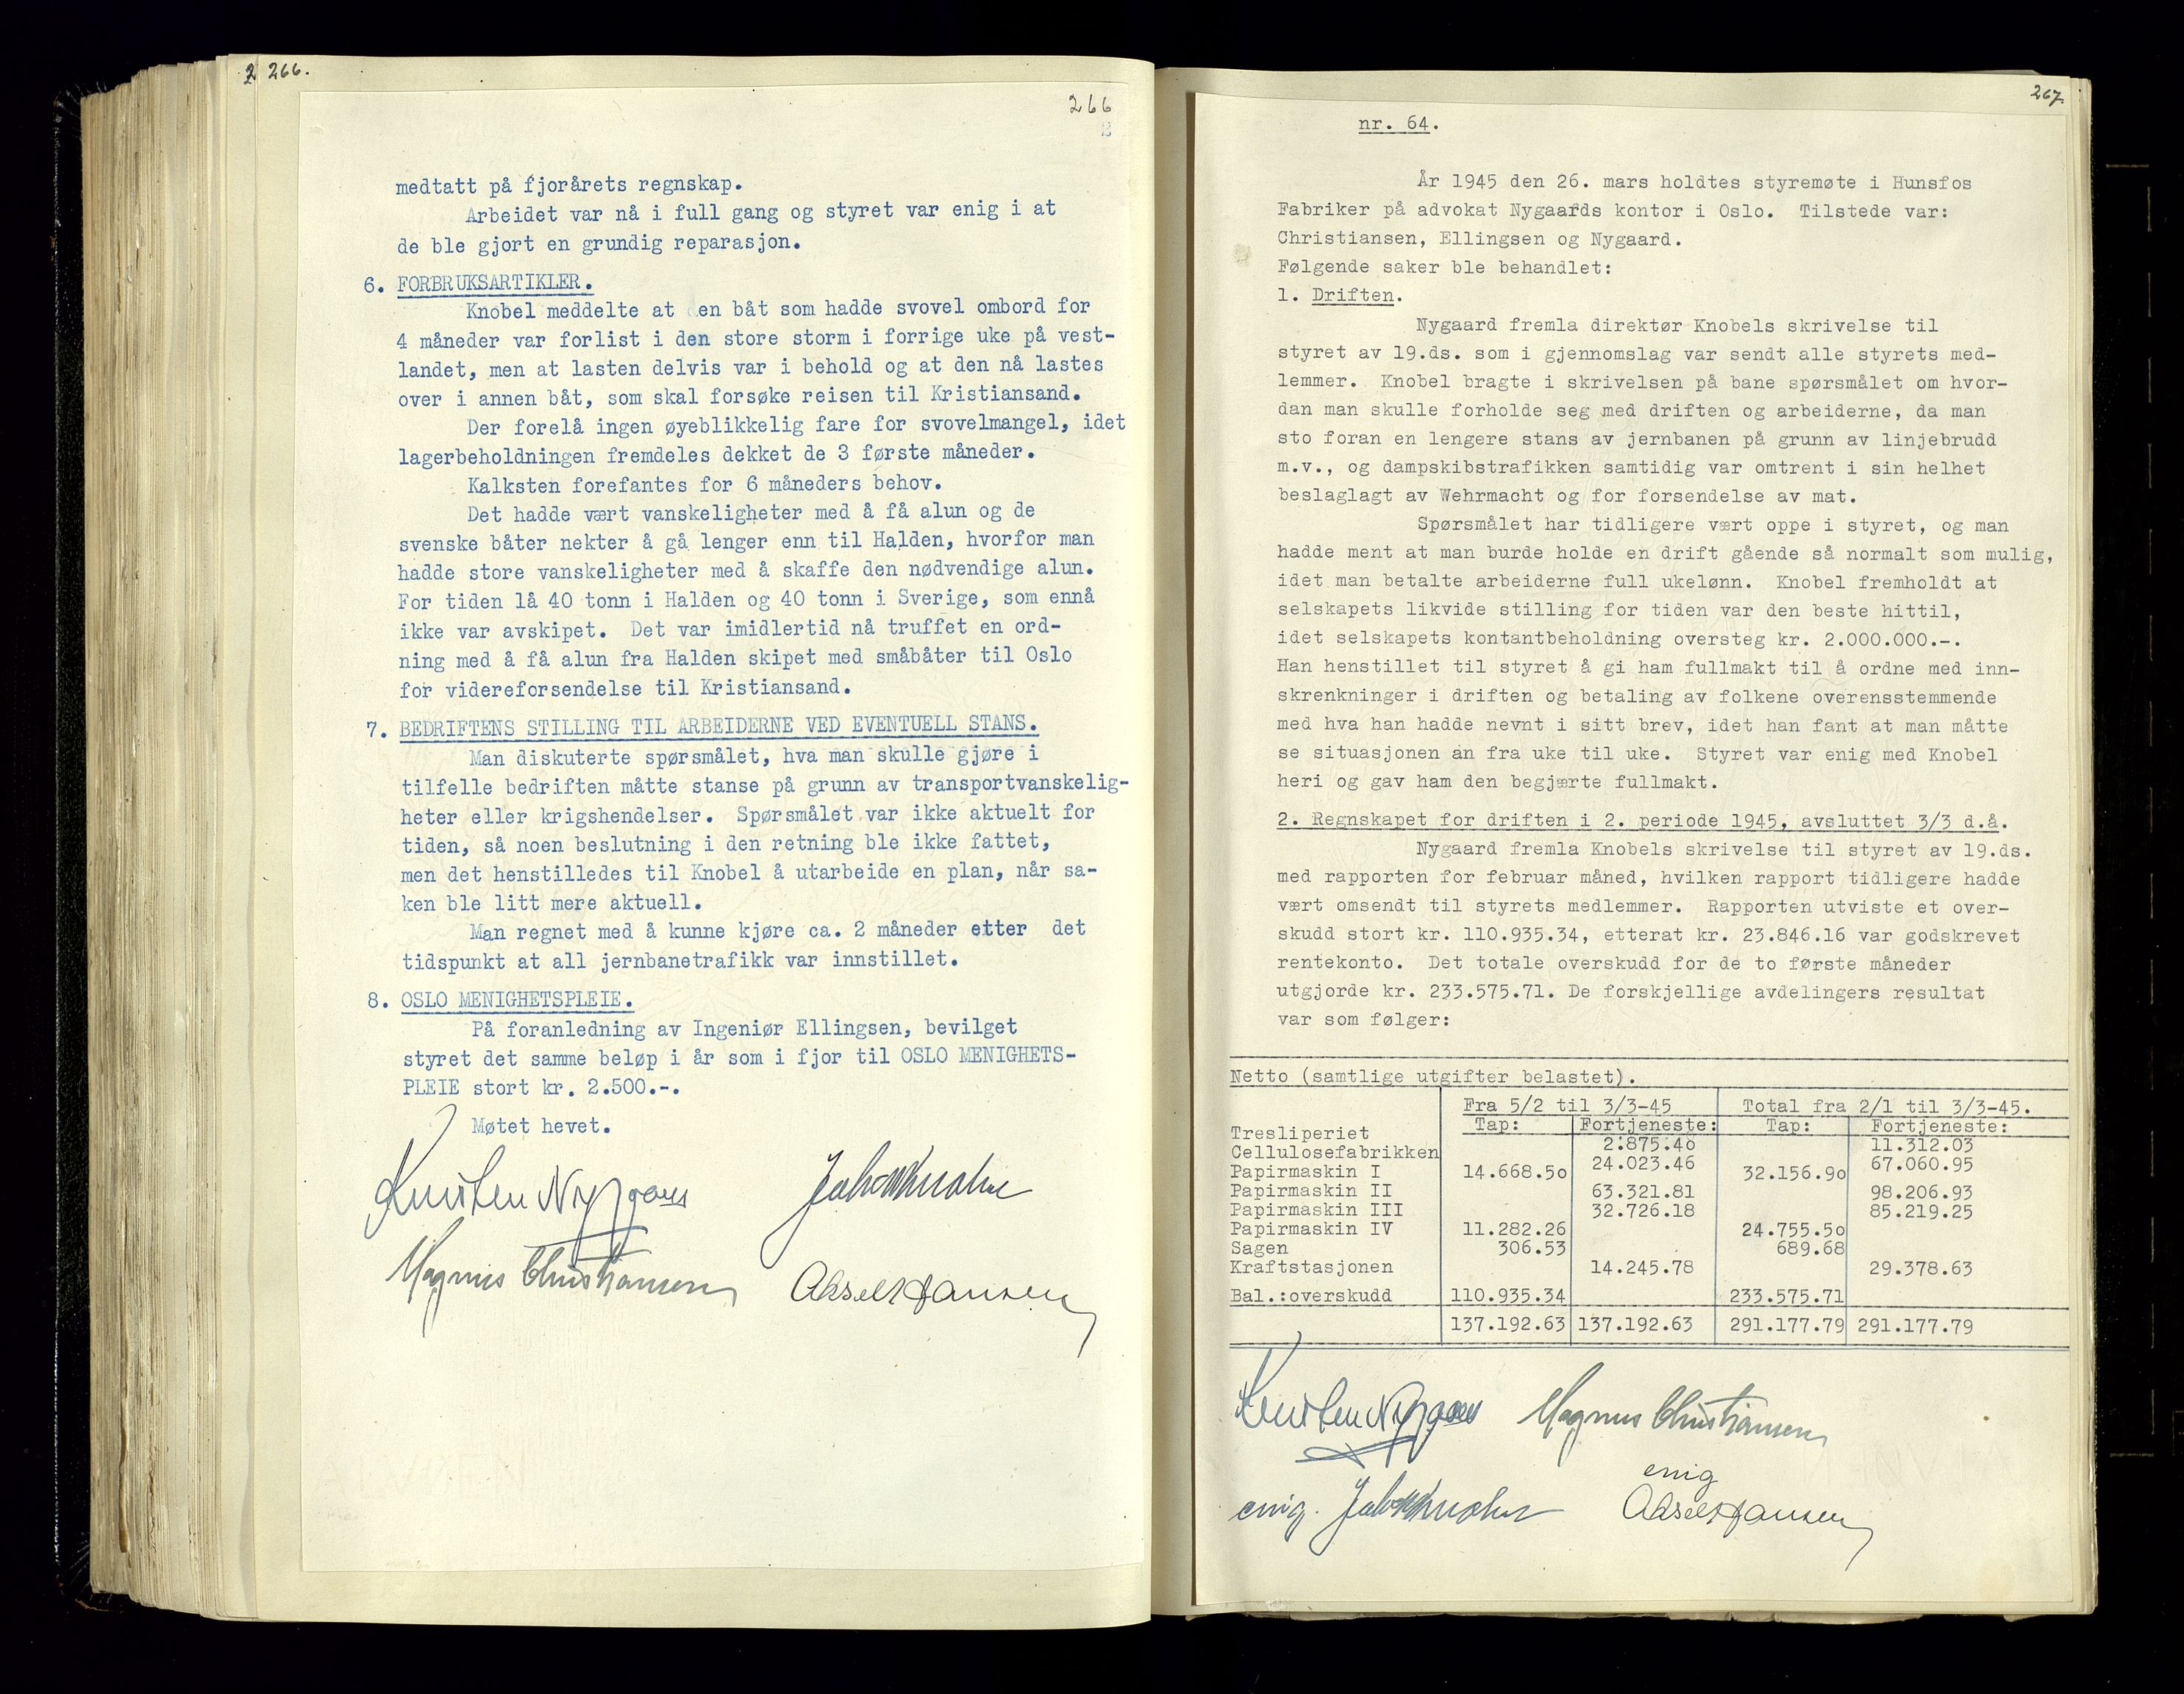 2 266.
266
2
medtatt på fjorårets regnskap.
Arbeidet var nå i full gang og styret var enig i at
de ble gjort en grundig reparasjon.
6. FORBRUKSARTIKLER.
Knobel meddelte at en båt som hadde svovel ombord for
4 måneder var forlist i den store storm i forrige uke på vest-
landet, men at lasten delvis var i behold og at den nå lastes
over i annen båt, som skal forsøke reisen til Kristiansand.
Der forelå ingen øyeblikkelig fare for svovelmangel, idet
lagerbeholdningen fremdeles dekket de 3 første måneder.
Kalksten forefantes for 6 måneders behov.
Det hadde vært vanskeligheter med å få alun og de
svenske båter nekter å gå lenger enn til Halden, hvorfor man
hadde store vanskeligheter med å skaffe den nødvendige alun.
For tiden lå 40 tonn i Halden og 40 tonn i Sverige, som ennå
ikke var avskipet. Det var imidlertid nå truffet en ord-
ning med å få alun fra Halden skipet med småbåter til Oslo
for videreforsendelse til Kristiansand.
7. BEDRIFTENS STILLING TIL ARBEIDERNE VED EVENTUELL STANS.
Man diskuterte spørsmålet, hva man skulle gjøre i
tilfelle bedriften måtte stanse på grunn av transportvanskelig-
heter eller krigshendelser. Spørsmålet var ikke aktuelt for
tiden, så noen beslutning i den retning ble ikke fattet,
men det henstilledes til Knobel å utarbeide en plan, når sa-
ken ble litt mere aktuell.
Man regnet med å kunne kjøre ca. 2 måneder etter det
tidspunkt at all jernbanetrafikk var innstillet.
8. OSLO MENIGHETSPLEIE.
På foranledning av Ingeniør Ellingsen, bevilget
styret det samme beløp i år som i fjor til OSLO MENIGHETS-
PLEIE stort kr. 2.500.-.
Møtet hevet.
Magnus Christiansen
Aksel Hansen
267.
nr. 64.
År 1945 den 26. mars holdtes styremøte i Hunsfos
Fabriker på advokat Nygaards kontor i Oslo. Tilstede var:
Christiansen, Ellingsen og Nygaard.
Følgende saker ble behandlet:
1. Driften.
Nygaard fremla direktør Knobels skrivelse til
styret av 19.ds. som i gjennomslag var sendt alle styrets med-
lemmer. Knobel bragte i skrivelsen på bane spørsmålet om hvor-
dan man skulle forholde seg med driften og arbeiderne, da man
sto foran en lengere stans av jernbanen på grunn av linjebrudd
m.v., og dampskibstrafikken samtidig var omtrent i sin helhet
beslaglagt av Wehrmacht og for forsendelse av mat.
Spørsmålet har tidligere vært oppe i styret, og man
hadde ment at man burde holde en drift gående så normalt som mulig,
idet man betalte arbeiderne full ukelønn. Knobel fremholdt at
selskapets likvide stilling for tiden var den beste hittil,
idet selskapets kontantbeholdning oversteg kr. 2.000.000.-.
Han henstillet til styret å gi ham fullmakt til å ordne med inn-
skrenkninger i driften og betaling av folkene overensstemmende
med hva han hadde nevnt i sitt brev, idet han fant at man måtte
se situasjonen an fra uke til uke. Styret var enig med Knobel
heri og gav ham den begjærte fullmakt.
2. Regnskapet for driften i 2. periode 1945, avsluttet 3/3 d.å.
Nygaard fremla Knobels skrivelse til styret av 19.ds.
med rapporten for februar måned, hvilken rapport tidligere hadde
vært omsendt til styrets medlemmer. Rapporten utviste et over-
skudd stort kr. 110.935.34, etterat kr. 23.846.16 var godskrevet
rentekonto. Det totale overskudd for de to første måneder
utgjorde kr. 233.575.71. De forskjellige avdelingers resultat
var som følger:
Netto (samtlige utgifter belastet).
Fra 5/2 til 3/3-45 Total fra 2/1 til 3/3-45.
Tap: Fortjeneste: Tap: Fortjeneste:
Tresliperiet 2.875.40 11.312.03
Cellulosefabrikken 24.023.46 67.060.95
Papirmaskin I 14.668.50 32.156.90
Papirmaskin II 63.321.81 98.206.93
Papirmaskin III 32.726.18 85.219.25
Papirmaskin IV 11.282.26 24.755.50
Sagen 306.53 689.68
Kraftstasjonen 14.245.78 29.378.63
Bal.:overskudd 110.935.34 233.575.71
137.192.63 137.192.63 291.177.79 291.177.79
Magnus Christiansen
enig
enig. Aksel Hansen